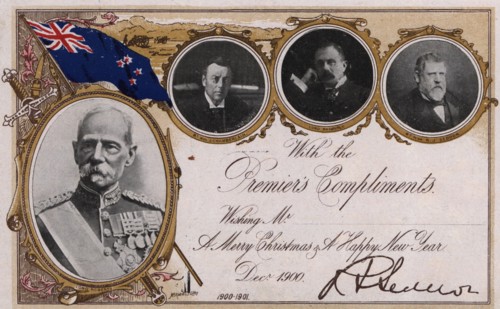 With the
Premier's Compliments.
Wishing Mr
A Merry Christmas & A Happy New Year
Decr 1900.
R J Seddon
1900-1901.